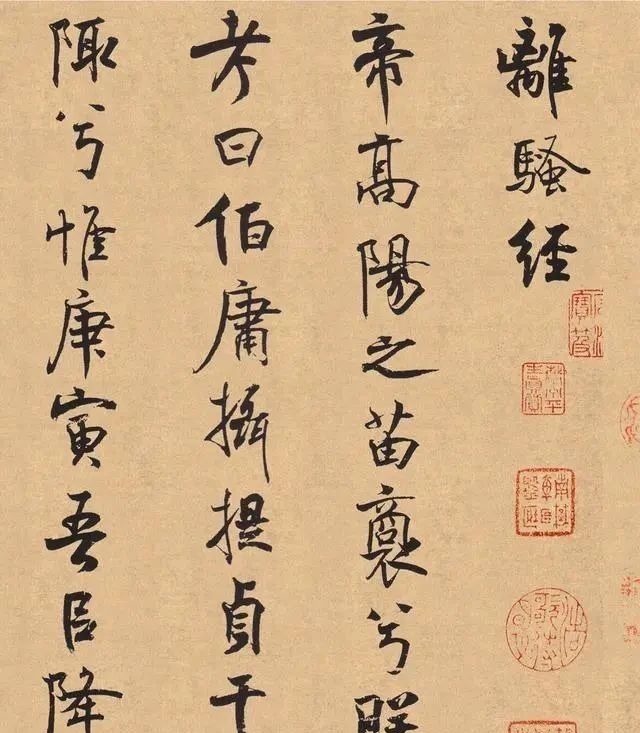 離騷經
帝高陽之苗裔兮朕
考曰伯庸攝提貞于
陬兮惟庚寅吾㠯降